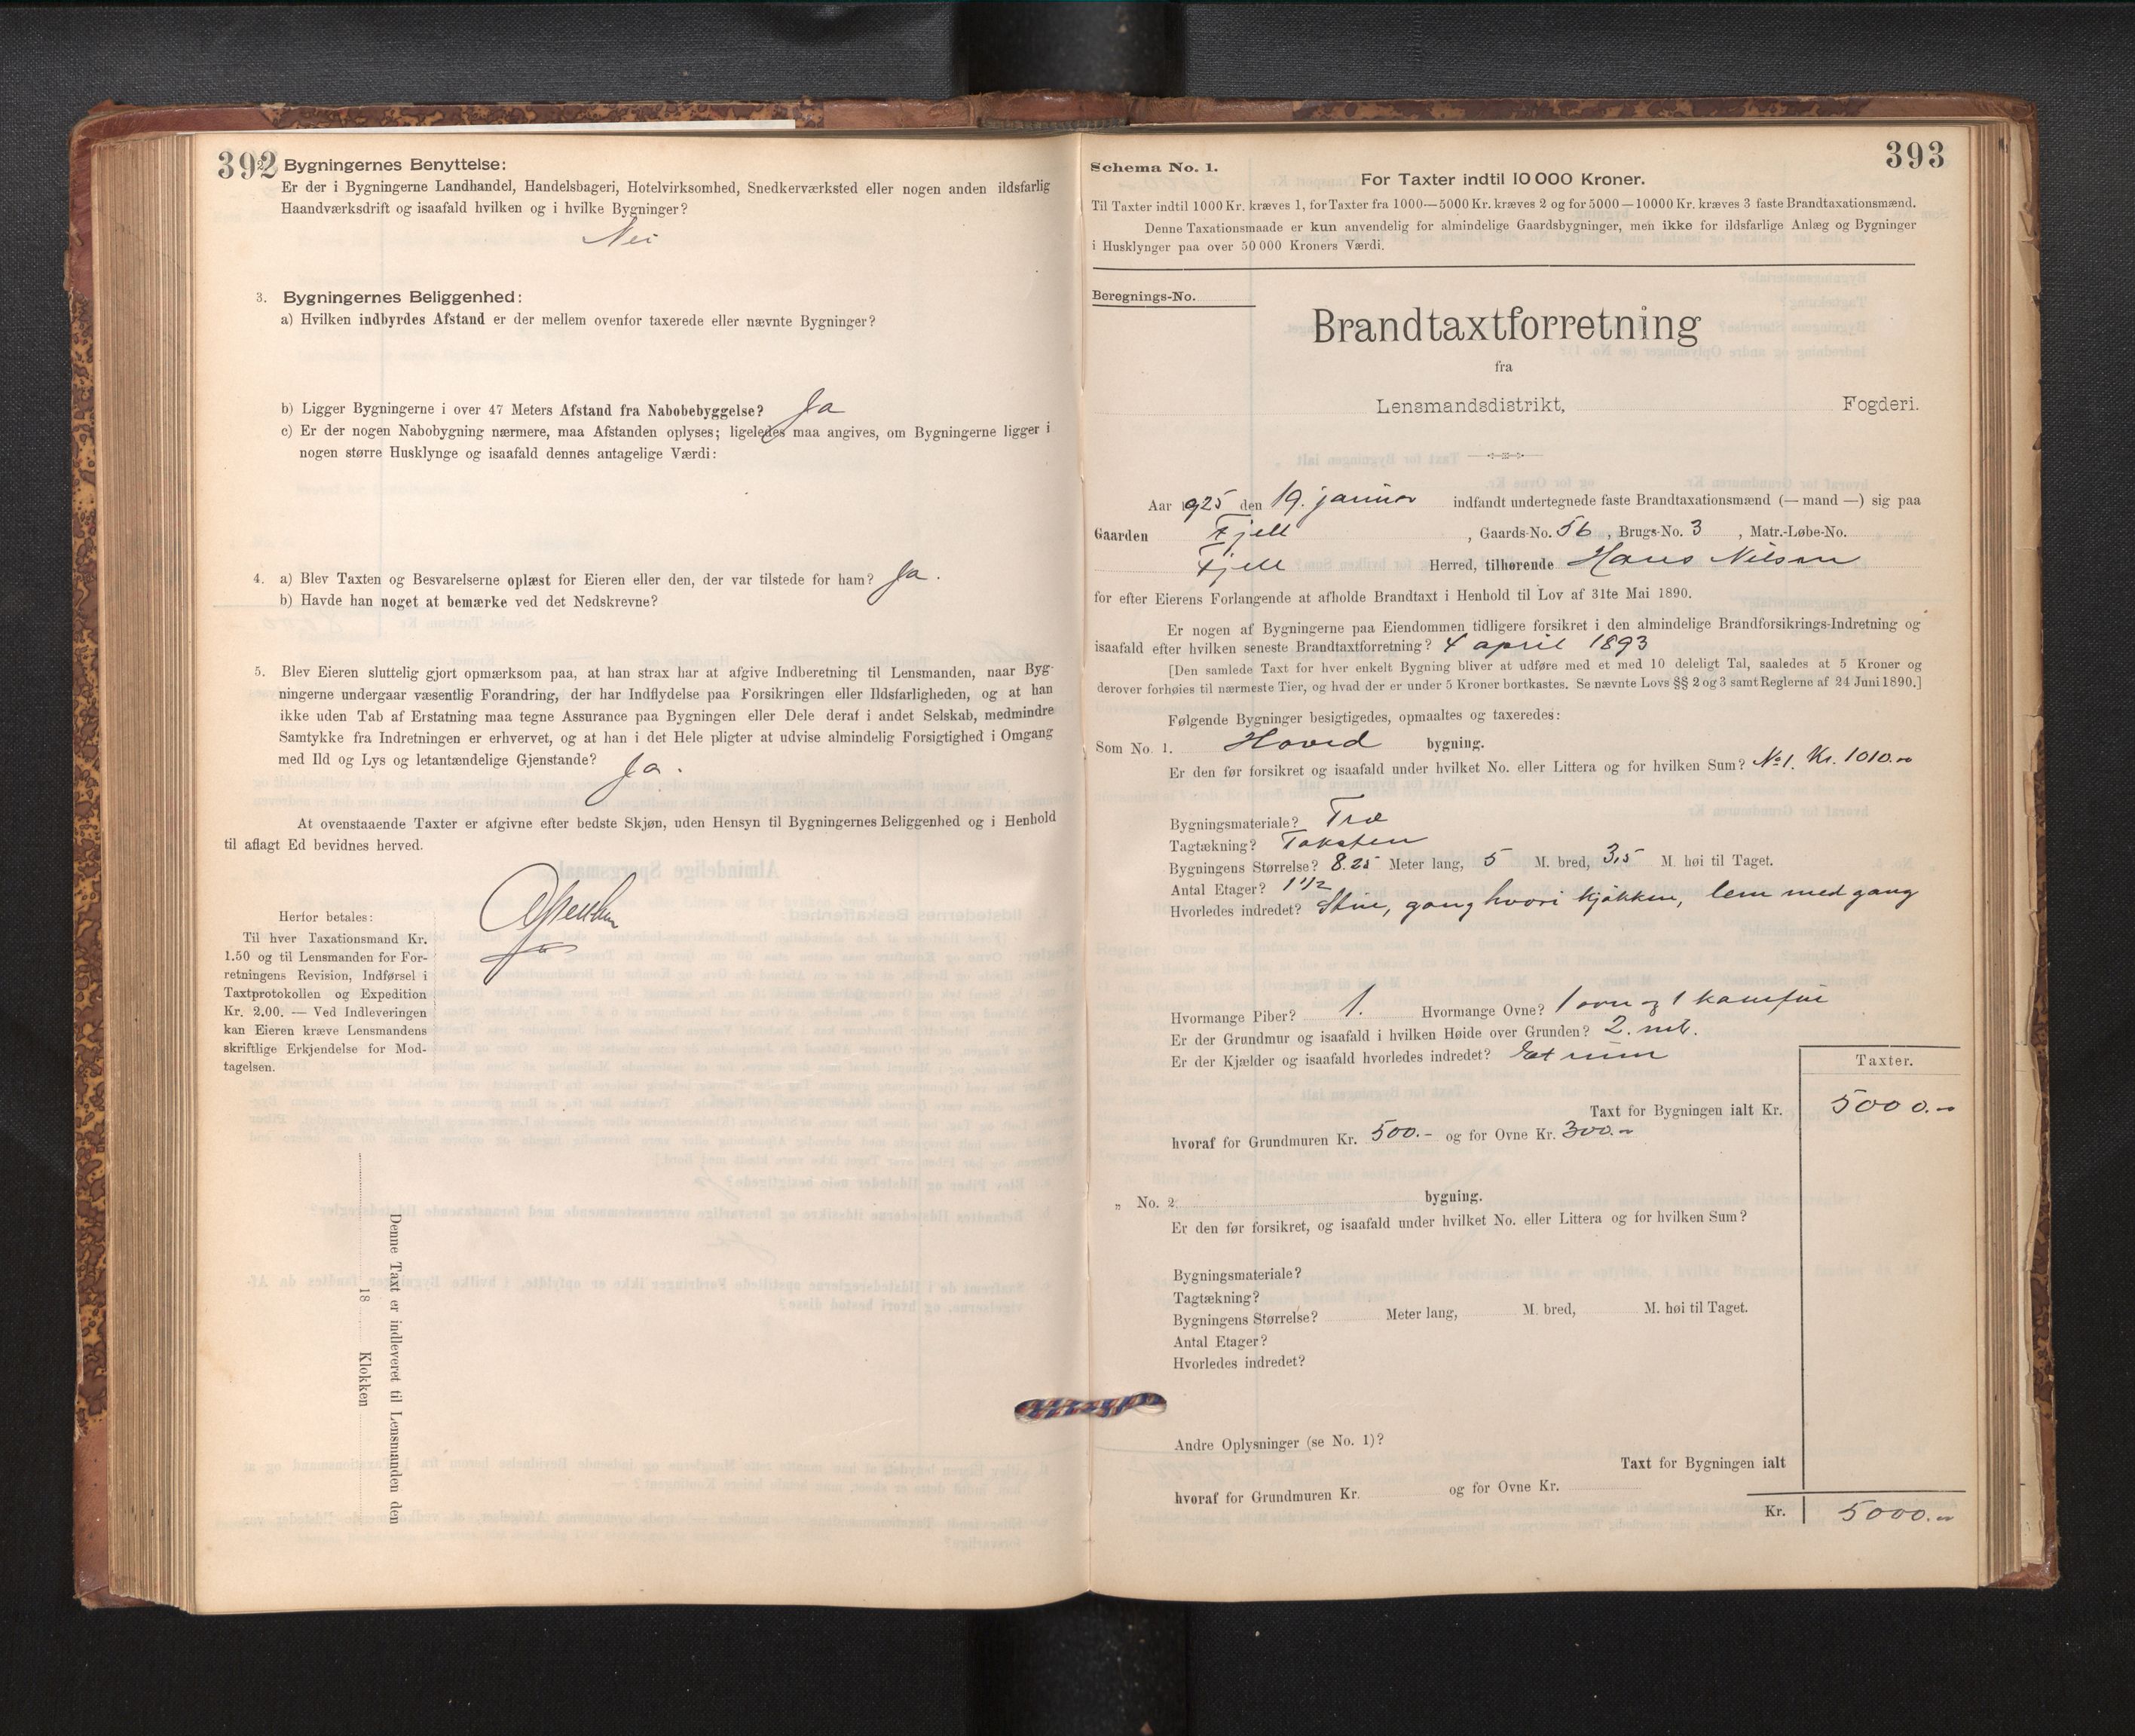 392
Bygningernes Benyttelse:
Er der i Bygningerne Landhandel, Handelsbageri, Hotelvirksomhed, Snedkerværksted eller nogen anden ildsfarlig
Haandværksdrift og isaafald hvilken og i hvilke Bygninger?
Nei
3. Bygningernes Beliggenhed:
a) Hvilken indbyrdes Afstand er der mellem ovenfor taxerede eller nævnte Bygninger?
b) Ligger Bygningerne i over 47 Meters Afstand fra Nabobebyggelse? Ja
c) Er der nogen Nabobygning nærmere, maa Afstanden oplyses; ligeledes maa angives, om Bygningerne ligger i
nogen større Husklynge og isaafald dennes antagelige Værdi:
4. a) Blev Taxten og Besvarelserne oplæst for Eieren eller den, der var tilstede for ham? Ja.
b) Havde han noget at bemærke ved det Nedskrevne?
5. Blev Eieren sluttelig gjort opmærksom paa, at han strax har at afgive Indberetning til Lensmanden, naar Byg-
ningerne undergaar væsentlig Forandring, der har Indflydelse paa Forsikringen eller Ildsfarligheden, og at han
ikke uden Tab af Erstatning maa tegne Assurance paa Bygningen eller Dele deraf i andet Selskab, medmindre
Samtykke fra Indretningen er erhvervet, og at han i det Hele pligter at udvise almindelig Forsigtighed i Omgang
med Ild og Lys og letantændelige Gjenstande? Ja.
At ovenstaaende Taxter er afgivne efter bedste Skjøn, uden Hensyn til Bygningernes Beliggenhed og i Henhold
til aflagt Ed bevidnes herved.
Herfor betales:
Til hver Taxationsmand Kr.
1.50 og til Lensmanden for For-
retningens Revision, Indførsel i
Taxtprotokollen og Expedition
Kr. 2.00. — Ved Indleveringen
kan Eieren kræve Lensmandens
skriftlige Erkjendelse for Mod-
tagelsen.
Denne Taxt er indleveret til Lensmanden den
18 Klokken
393
Schema No. 1.
For Taxter indtil 10 000 Kroner.
Til Taxter indtil 1000 Kr. kræves 1, for Taxter fra 1000—5000 Kr. kræves 2 og for 5000—10000 Kr. kræves 3 faste Brandtaxationsmænd.
Denne Taxationsmaade er kun anvendelig for almindelige Gaardsbygninger, men ikke for ildsfarlige Anlæg og Bygninger
i Husklynger paa over 50 000 Kroners Værdi.
Beregnings-No.
Brandtaxtforretning
fra
Lensmandsdistrikt, Fogderi.
Aar 1925 den 19. januar indfandt undertegnede faste Brandtaxationsmænd (— mand —) sig paa
Gaarden Fjell, Gaards-No. 56, Brugs-No. 3, Matr.-Løbe-No.
Fjell Herred, tilhørende Hans Nilsen
for efter Eierens Forlangende at afholde Brandtaxt i Henhold til Lov af 31te Mai 1890.
Er nogen af Bygningerne paa Eiendommen tidligere forsikret i den almindelige Brandforsikrings-Indretning og
isaafald efter hvilken seneste Brandtaxtforretning? 4 april 1893
[Den samlede Taxt for hver enkelt Bygning bliver at udføre med et med 10 deleligt Tal, saaledes at 5 Kroner og
derover forhøies til nærmeste Tier, og hvad der er under 5 Kroner bortkastes. Se nævnte Lovs §§ 2 og 3 samt Reglerne af 24 Juni 1890.]
Følgende Bygninger besigtigedes, opmaaltes og taxeredes:
Som No. 1. Hoved bygning.
Er den før forsikret og isaafald under hvilket No. eller Littera og for hvilken Sum? No 1. Kr. 1010.-
Bygningsmateriale? Træ
Tagtækning? Taksten
Bygningens Størrelse? 8.25 Meter lang, 5 M. bred, 3,5 M. høi til Taget.
Antal Etager? 1 1/2
Hvorledes indredet? Stue, gang hvori kjøkken, lem med gang
Hvormange Piber? 1. Hvormange Ovne? 1 ovn og 1 komfur
Er der Grundmur og isaafald i hvilken Høide over Grunden? 2. mtr.
Er der Kjælder og isaafald hvorledes indredet? Et rum
Taxter.
Taxt for Bygningen ialt Kr. 5000.-
hvoraf for Grundmuren Kr. 500.- og for Ovne Kr. 300.-
„ No. 2. bygning.
Er den før forsikret, og isaafald under hvilket No. eller Littera og for hvilken Sum?
Bygningsmateriale?
Tagtækning?
Bygningens Størrelse? Meter lang, M. bred, M. høi til Taget.
Antal Etager?
Hvorledes indredet?
Andre Oplysninger (se No. 1)?
Taxt for Bygningen ialt
hvoraf for Grundmuren Kr. og for Ovne Kr.
Kr. 5000.-